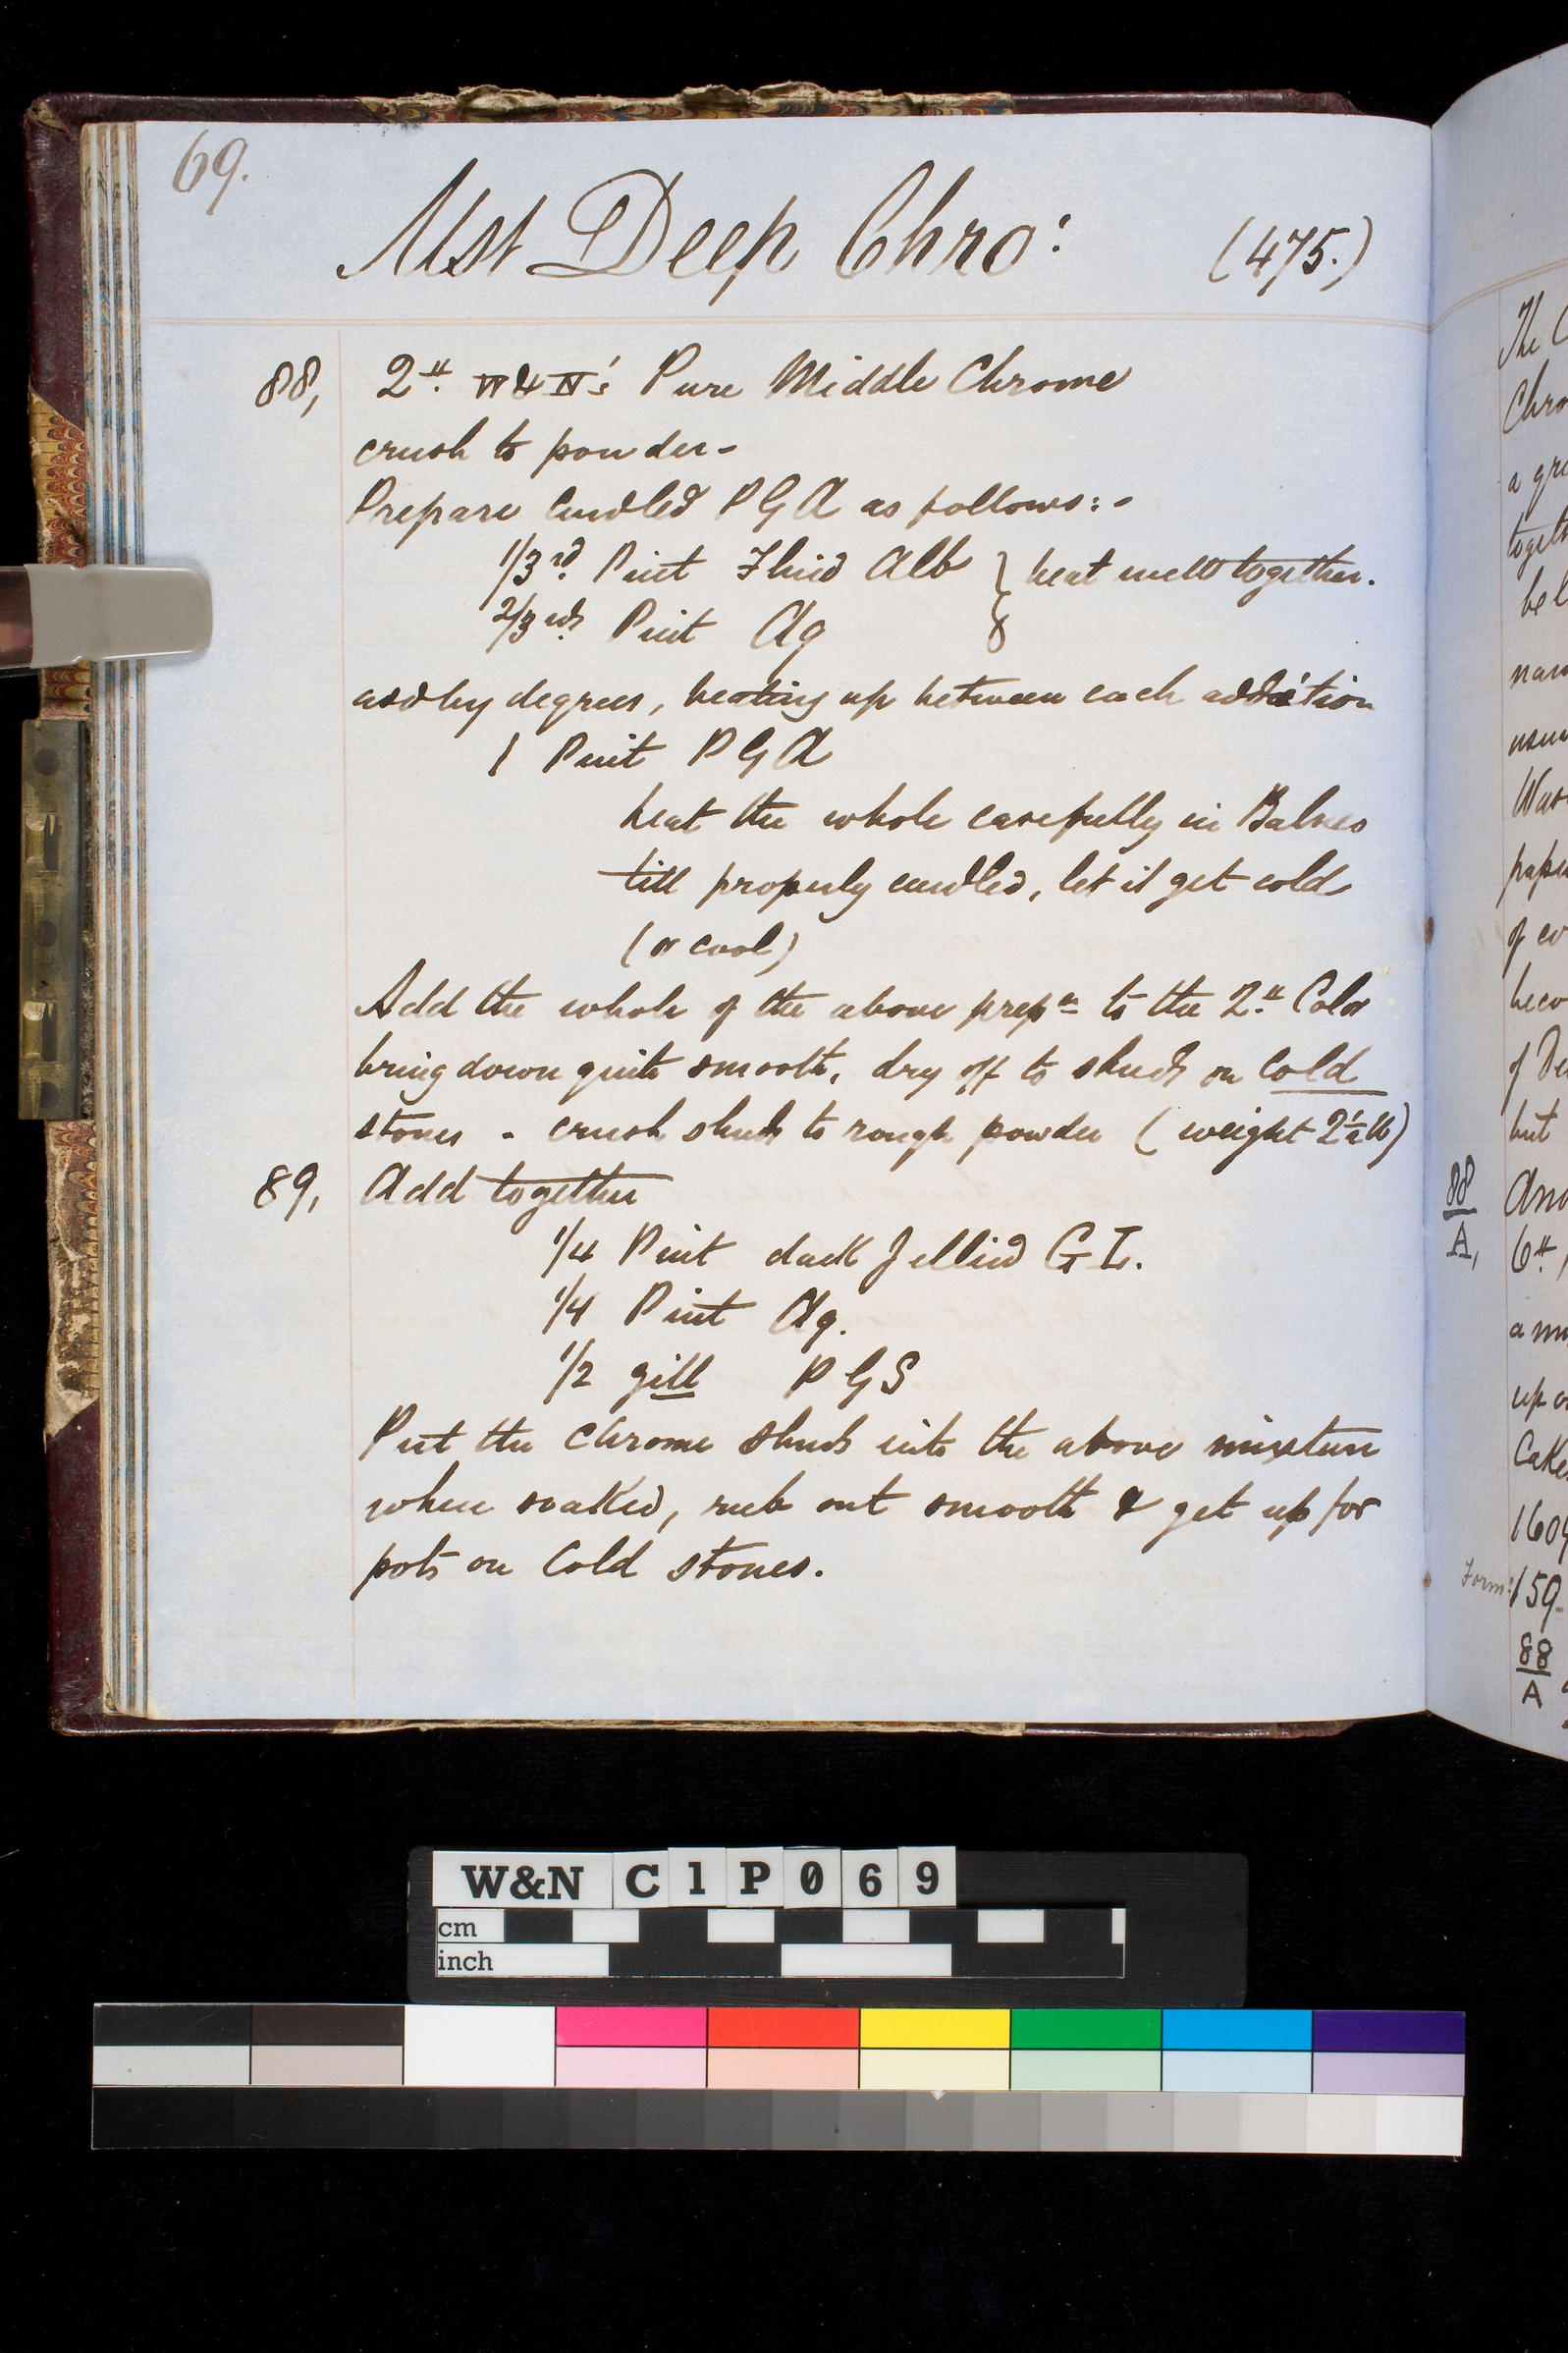 69.
Mst Deep Chro: (475.)
88, 2 lb. W & N's Pure Middle Chrome
crush to powder -
Prepare Curdled P G A as follows: -
1/3rd. Pint Fluid Alb } beat well together.
2/3rds. Pint Aq
add by degrees, beating up between each addition
1 Pint P G A
heat the whole carefully in Balneo
till properly curdled, let it get cold
(or cool)
Add the whole of the above prepn to the 2 lb. Color
bring down quite smooth, dry off to sluds on Cold
stones - crush sluds to rough powder (weight 2 1/2 lb)
89, Add together
1/4 Pint dark Jellied G L.
1/4 Pint Aq.
1/2 gill P G S
Put the Chrome sluds into the above mixture
when soaked, rub out smooth & get up for
pots on Cold stones.
The
Chro
a gre
togeth
be l
nam
usua
Was
pape
of co
beco
of De
but
88
A,
6 lb,
a mi
up o
Cake
160
Form:
159
88
A
W&N C1P069
cm
inch